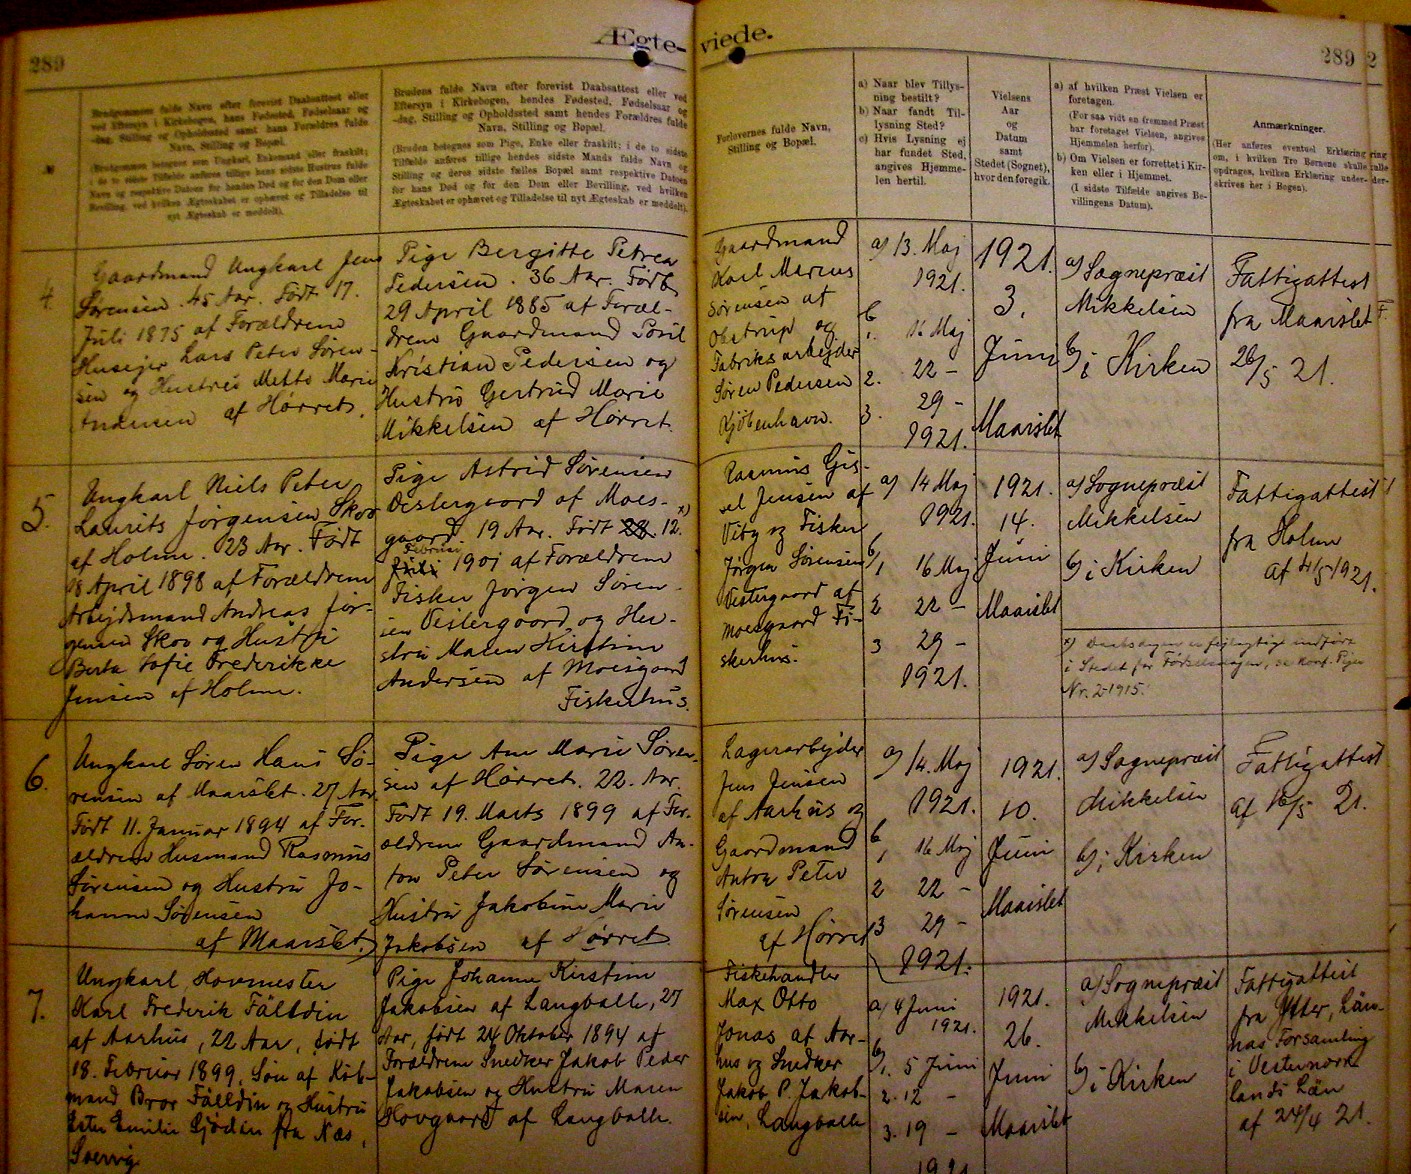 289
Ægte-
viede.
289
2
Brudgommens fulde Navn efter forevist Daabsattest eller
ved Eftersyn i Kirkebogen, hans Fødested, Fødselsaar og
-dag, Stilling og Opholdssted samt hans Forældres fulde
Navn, Stilling og Bopæl.
(Brudgommen betegnes som Ungkarl, Enkemand eller fraskilt;
i de to sidste Tilfælde anføres tillige hans sidste Hustrus fulde
Navn og respektive Datoen for hendes Død og for den Dom eller
Bevilling, ved hvilken Ægteskabet er ophævet og Tilladelse til
nyt Ægteskab er meddelt).
Brudens fulde Navn efter forevist Daabsattest eller ved
Eftersyn i Kirkebogen, hendes Fødested, Fødselsaar og
-dag, Stilling og Opholdssted samt hendes Forældres fulde
Navn, Stilling og Bopæl.
(Bruden betegnes som Pige, Enke eller fraskilt; i de to sidste
Tilfælde anføres tillige hendes sidste Mands fulde Navn og
Stilling og deres sidste fælles Bopæl samt respektive Datoen
for hans Død og for den Dom eller Bevilling, ved hvilken
Ægteskabet er ophævet og Tilladelse til nyt Ægteskab er meddelt).
Forlovernes fulde Navn,
Stilling og Bopæl.
a) Naar blev Tillys-
ning bestilt?
b) Naar fandt Til-
lysning Sted?
c) Hvis Lysning ej
har fundet Sted,
angives Hjemme-
len hertil.
Vielsens
Aar
og
Datum
samt
Stedet (Sognet),
hvor den foregik.
a) af hvilken Præst Vielsen er
foretagen.
(For saa vidt en fremmed Præst
har foretaget Vielsen, angives
Hjemmelen herfor).
b) Om Vielsen er forrettet i Kir-
ken eller i Hjemmet.
(I sidste Tilfælde angives Be-
villingens Datum).
Anmærkninger.
(Her anføres eventuel Erklæring
om, i hvilken Tro Børnene skulle
opdrages, hvilken Erklæring under-
skrives her i Bogen).
4.
Gaardmand Ungkarl Jens
Sørensen. 45 Aar. Født 17.
Juli 1875 af Forældrene
Husejer Lars Peter Søren-
sen og Hustru Mette Marie
Andersen af Hørret.
Pige Bergitte Petrea
Pedersen. 36 Aar. Født
29 April 1885 af Foræl-
drene Gaardmand Povil
Kristian Pedersen og
Hustru Gertrud Marie
Mikkelsen af Hørret.
Gaardmand
Karl Marius
Sørensen af
Obstrup og
Fabriksarbejder
Søren Pedersen
Kjøbenhavn.
a) 13. Maj
1921.
b
1. 16 Maj
2. 22 –
3. 29 –
1921.
1921.
3.
Juni
Maarslet
a) Sognepræst
Mikkelsen
b) i Kirken
Fattigattest
fra Maarslet
26/5 21.
5.
Ungkarl Niels Peter
Laurits Jørgensen Skov
af Holme. 23 Aar. Født
18 April 1898 af Forældrene
Arbejdsmand Andreas Jør-
gensen Skov og Hustru
Berta Sofie Frederikke
Jensen af Holme.
Pige Astrid Sørensen
Vestergaard af Moes-
gaard 19 Aar. Født 28. 12. x)
Februar
Juli 1901 af Forældrene
Fisker Jørgen Søren-
sen Vestergaard og Hu-
stru Maren Kirstine
Andersen af Moesgaard
Fiskerhus.
Rasmus Gis-
sel Jensen af
Viby og Fisker
Jørgen Sørensen
Vestergaard af
Moesgaard Fi-
skerhus.
a) 14 Maj
1921.
b
1 16 Maj
2 22 –
3 29 –
1921.
1921.
14.
Juni
Maarslet
a) Sognepræst
Mikkelsen
b) i Kirken
Fattigattest
fra Holme
af 4/5 1921.
x) Daabsdagen er fejlagtigt indført
i Stedet for Fødselsdagen, se Konf. Piger
Nr. 2 1915.
6.
Ungkarl Søren Hans Sø-
rensen af Maarslet. 27 Aar.
Født 11. Januar 1894 af For-
ældrene Husmand Rasmus
Sørensen og Hustru Jo-
hanne Sørensen
af Maarslet.
Pige Ane Marie Søren-
sen af Hørret. 22. Aar.
Født 19. Marts 1899 af For-
ældrene Gaardmand An-
ton Peter Sørensen og
Hustru Jakobine Marie
Jakobsen af Hørret
Lagerarbejder
Jens Jensen
af Aarhus og
Gaardmand
Anton Peter
Sørensen
af Hørret
a) 14. Maj
1921.
b
1 16 Maj
2 22 –
3 29 –
1921.
1921.
10.
Juni
Maarslet
a) Sognepræst
Mikkelsen
b) i Kirken
Fattigattest
af 16/5 21.
7.
Ungkarl, Hovmester
Karl Frederik Fälldin
af Aarhus, 22 Aar, født
18. Februar 1899, Søn af Køb-
mand Bror Fälldin og Hustru
Ester Emilie Sjödin fra Næs,
Sverrig
Pige Johanne Kirstine
Jakobsen af Langballe, 27
Aar, født 24 Oktober 1894 af
Forældrene Snedker Jakob Peder
Jakobsen og Hustru Maren
Hovgaard af Langballe.
Fiskehandler
Max Otto
Jonas af Aar-
hus og Snedker
Jakob P. Jakob-
sen, Langballe
a) 4 Juni
1921.
b
1. 5 Juni
2. 12 –
3. 19 –
1921
1921.
26.
Juni
Maarslet
a) Sognepræst
Mikkelsen
b) i Kirken
Fattigattest
fra Ytter, Län-
näs Forsamling
i Vesternorr-
lands Län
af 24/4 21.